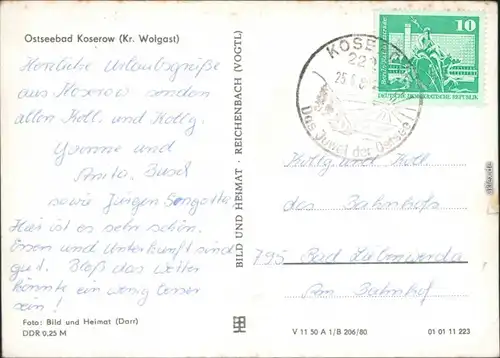 Ostseebad Koserow (Kr. Wolgast)
Herzliche Urlaubsgrüße
aus Koserow senden
allen Koll. und Kollg.
Yvonne und
Anita Busch
sowie Jürgen
Hier ist es sehr schön.
Essen und Unterkunft sind
gut. Bloß das Wetter
könnte ein wenig besser
sein!
Foto: Bild und Heimat (Darr)
DDR 0,25 M
BILD UND HEIMAT · REICHENBACH (VOGTL)
KOSEROW
Das Juwel der Ostsee
10
DEUTSCHE DEMOKRATISCHE REPUBLIK
Kollg und Koll
des Bahnhofs
795 Bad Liebenwerda
Am Bahnhof
V 11 50 A 1/B 206/80
01 01 11 223